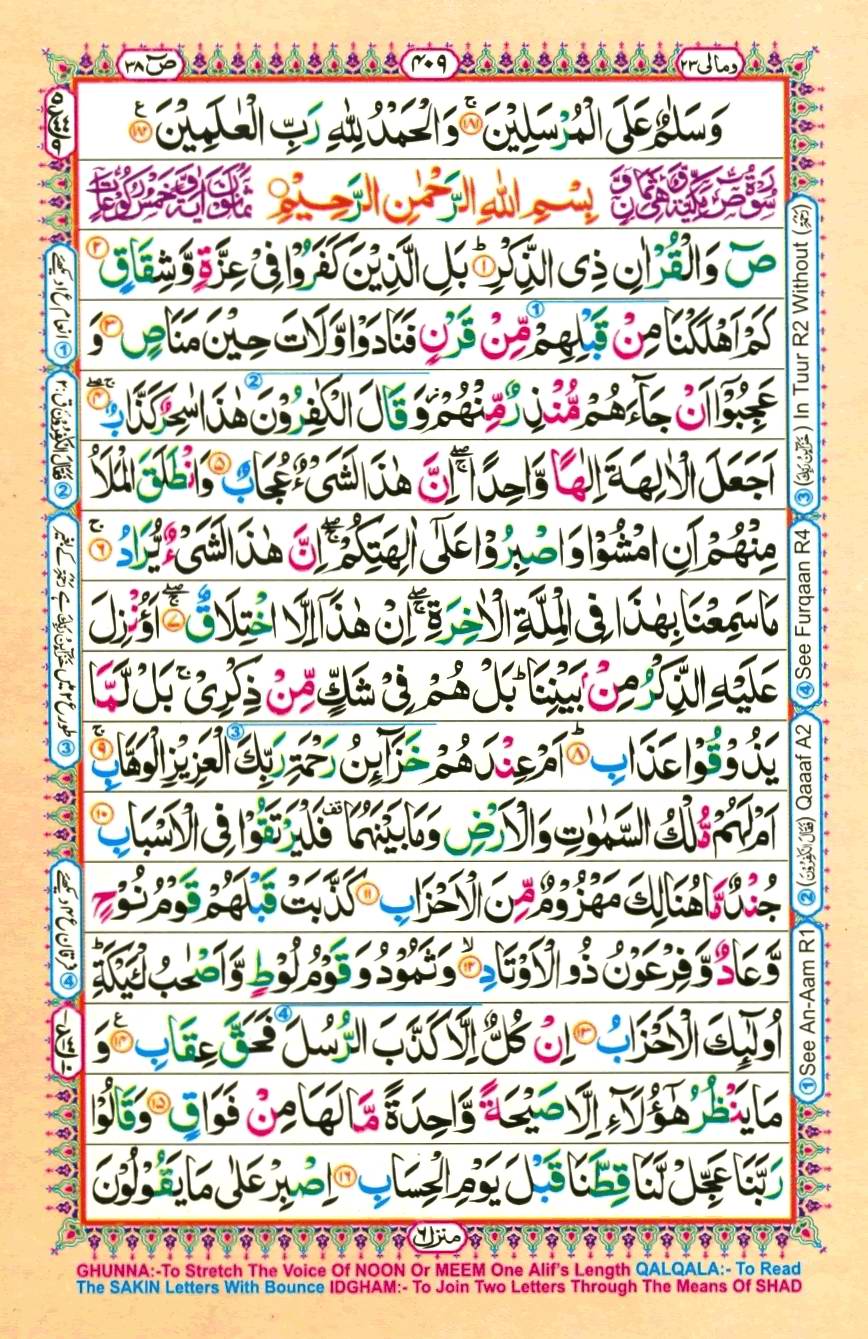 ومالی ۲۳
۴۰۹
صٓ ۳۸
وَسَلٰمٌ عَلَى الْمُرْسَلِيْنَ ۚ﴿۱۸۱﴾ وَالْحَمْدُ لِلّٰهِ رَبِّ الْعٰلَمِيْنَ ﴿۱۸۲﴾ ع
سُوْرَةُ صٓ مَكِّيَّةٌ وَّهِيَ ثَمَانٌ وَّ
بِسْمِ اللّٰهِ الرَّحْمٰنِ الرَّحِيْمِ
ثَمَانُوْنَ اٰيَةً وَّخَمْسُ رُكُوْعَاتٍ
صٓ وَالْقُرْاٰنِ ذِى الذِّكْرِ ؕ﴿۱﴾ بَلِ الَّذِيْنَ كَفَرُوْا فِىْ عِزَّةٍ وَّشِقَاقٍ ﴿۲﴾
كَمْ اَهْلَكْنَا مِنْ قَبْلِهِمْ مِّنْ قَرْنٍ فَنَادَوْا وَّلَاتَ حِيْنَ مَنَاصٍ ﴿۳﴾ وَ
عَجِبُوْۤا اَنْ جَآءَهُمْ مُّنْذِرٌ مِّنْهُمْ ؗ وَقَالَ الْكٰفِرُوْنَ هٰذَا سٰحِرٌ كَذَّابٌ ۖۚ﴿۴﴾
اَجَعَلَ الْاٰلِهَةَ اِلٰهًا وَّاحِدًا ۖۚ اِنَّ هٰذَا لَشَىْءٌ عُجَابٌ ﴿۵﴾ وَانْطَلَقَ الْمَلَاُ
مِنْهُمْ اَنِ امْشُوْا وَاصْبِرُوْا عَلٰٓى اٰلِهَتِكُمْ ۖۚ اِنَّ هٰذَا لَشَىْءٌ يُّرَادُ ۚ﴿۶﴾
مَا سَمِعْنَا بِهٰذَا فِى الْمِلَّةِ الْاٰخِرَةِ ۖۚ اِنْ هٰذَاۤ اِلَّا اخْتِلَاقٌ ۖۚ﴿۷﴾ ءَاُنْزِلَ
عَلَيْهِ الذِّكْرُ مِنْۢ بَيْنِنَا ؕ بَلْ هُمْ فِىْ شَكٍّ مِّنْ ذِكْرِىْ ۚ بَلْ لَّمَّا
يَذُوْقُوْا عَذَابِ ؕ﴿۸﴾ اَمْ عِنْدَهُمْ خَزَآئِنُ رَحْمَةِ رَبِّكَ الْعَزِيْزِ الْوَهَّابِ ۚ﴿۹﴾
اَمْ لَهُمْ مُّلْكُ السَّمٰوٰتِ وَالْاَرْضِ وَمَا بَيْنَهُمَا ۫ فَلْيَرْتَقُوْا فِى الْاَسْبَابِ ﴿۱۰﴾
جُنْدٌ مَّا هُنَالِكَ مَهْزُوْمٌ مِّنَ الْاَحْزَابِ ﴿۱۱﴾ كَذَّبَتْ قَبْلَهُمْ قَوْمُ نُوْحٍ
وَّعَادٌ وَّفِرْعَوْنُ ذُو الْاَوْتَادِ ۙ﴿۱۲﴾ وَثَمُوْدُ وَقَوْمُ لُوْطٍ وَّاَصْحٰبُ لْئَيْكَةِ ؕ
اُولٰٓئِكَ الْاَحْزَابُ ﴿۱۳﴾ اِنْ كُلٌّ اِلَّا كَذَّبَ الرُّسُلَ فَحَقَّ عِقَابِ ﴿۱۴﴾ ع وَ
مَا يَنْظُرُ هٰٓؤُلَآءِ اِلَّا صَيْحَةً وَّاحِدَةً مَّا لَهَا مِنْ فَوَاقٍ ﴿۱۵﴾ وَقَالُوْا
رَبَّنَا عَجِّلْ لَّنَا قِطَّنَا قَبْلَ يَوْمِ الْحِسَابِ ﴿۱۶﴾ اِصْبِرْ عَلٰى مَا يَقُوْلُوْنَ
③ (خَزَآئِنُ رَبِّكَ) In Tuur R2 Without (رَحْمَةِ)
④ See Furqaan R4
② (فَقَالَ الْكٰفِرُوْنَ) Qaaaf A2
① See An-Aam R1
منزل ۶
GHUNNA:-To Stretch The Voice Of NOON Or MEEM One Alif's Length QALQALA:- To Read
The SAKIN Letters With Bounce IDGHAM:- To Join Two Letters Through The Means Of SHAD